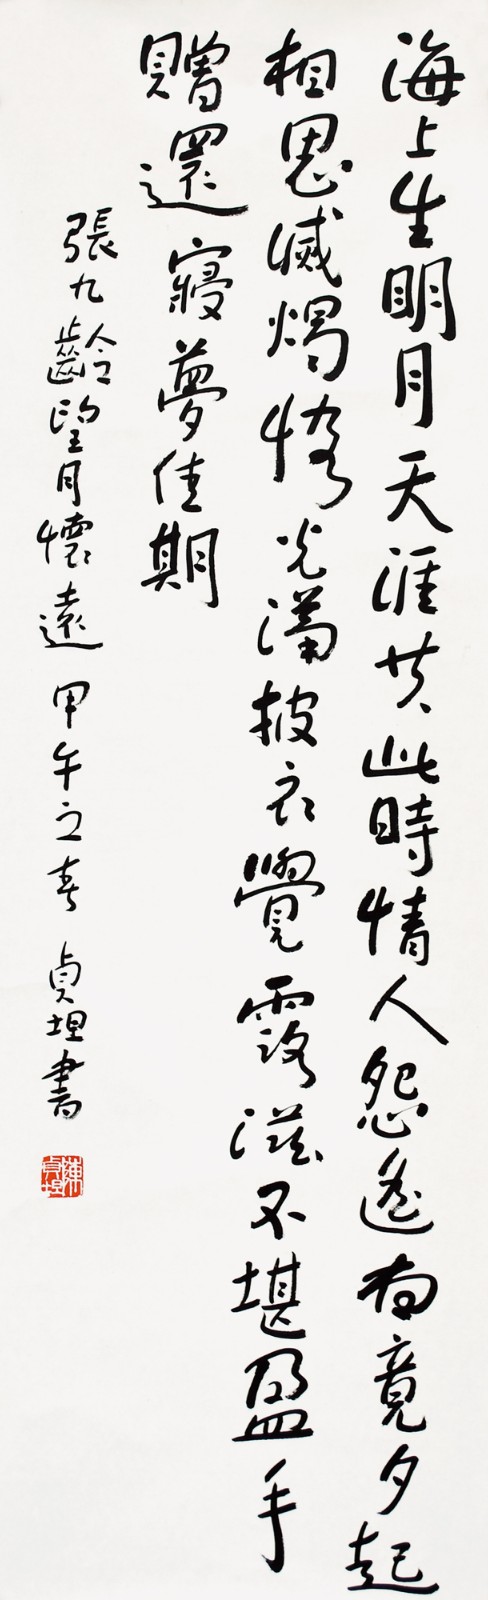 海上生明月天涯共此時情人怨遙夜竟夕起
相思滅燭憐光滿披衣覺露滋不堪盈手
贈還寢夢佳期
張九齡望月懷遠 甲午之春 貞坦書
陳貞坦